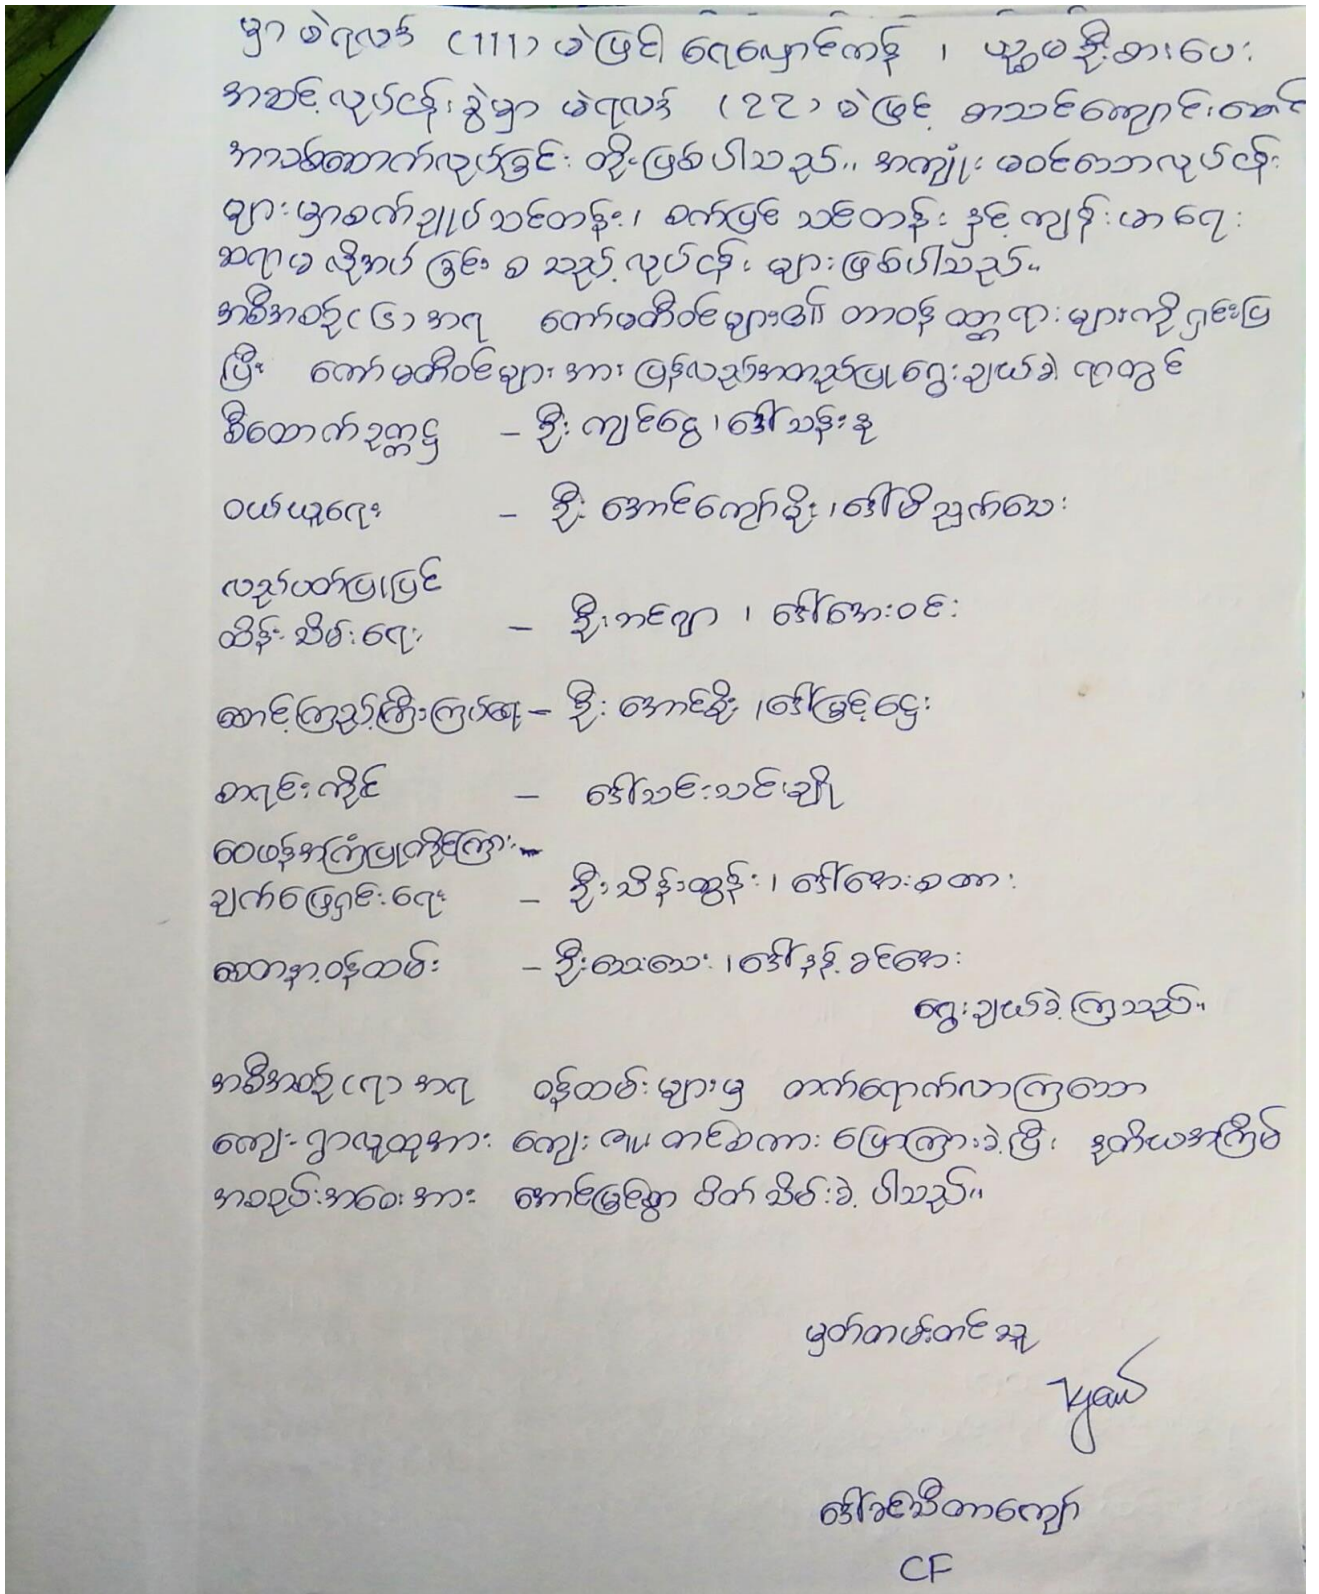 မှာ မဲရလဒ် (111) မဲဖြင့် ရေလှောင်ကန် ၊ ယဉ်မဦးစားပေး
အဆင့်လုပ်ငန်းခွဲမှာ မဲရလဒ် (77) မဲဖြင့် စာသင်ကျောင်းဆောင်
အသစ်ဆောက်လုပ်ခြင်း တို့ဖြစ်ပါသည်။ အကျုံးမဝင်သောလုပ်ငန်း
များမှာစက်ချုပ်သင်တန်း၊ စက်ပြင်သင်တန်းနှင့်ကျန်းမာရေး
ဆရာမ လိုအပ်ခြင်း စသည့်လုပ်ငန်းများဖြစ်ပါသည်။
အစီအစဉ်(၆)အရ ကော်မတီဝင်များ၏ တာဝန်ဝတ္တရားများကိုရှင်းပြ
ပြီး ကော်မတီဝင်များအား ပြန်လည်အတည်ပြုရွေးချယ်ခဲ့ရာတွင်
စီထောက်ဥက္ကဋ္ဌ – ဦးကျင်ငွေ၊ဒေါ်သန်းနု
ဝယ်ယူရေး – ဦးအောင်ကျော်မိုး၊ဒေါ်မိညွက်သေး
လည်ပတ်ပြုပြင်
ထိန်းသိမ်းရေး – ဦးဘင်ဂျာ ၊ ဒေါ်အေးဝင်း
စောင့်ကြည့်ကြီးကြပ်ရေး – ဦးအောင်မိုး ၊ဒေါ်မြင့်ဌေး
စာရင်းကိုင် – ဒေါ်သင်းသင်းချို
ဝေဖန်အကြံပြုတိုင်ကြား
ချက်ဖြေရှင်းရေး – ဦးသိန်းထွန်း၊ ဒေါ်အေးစတား
စေတနာ့ဝန်ထမ်း – ဦးသေးသေး၊ဒေါ်နန့်ခင်အေး
ရွေးချယ်ခဲ့ကြသည်။
အစီအစဉ်(၇) အရ ဝန်ထမ်းများမှ တက်ရောက်လာကြသော
ကျေးရွာလူထုအား ကျေးဇူးတင်စကား ပြောကြားခဲ့ပြီး ဒုတိယအကြိမ်
အစည်းအဝေးအား အောင်မြင်စွာ ပိတ်သိမ်းခဲ့ပါသည်။
မှတ်တမ်းတင်သူ
ဒေါ်ခင်သီတာကျော်
CF